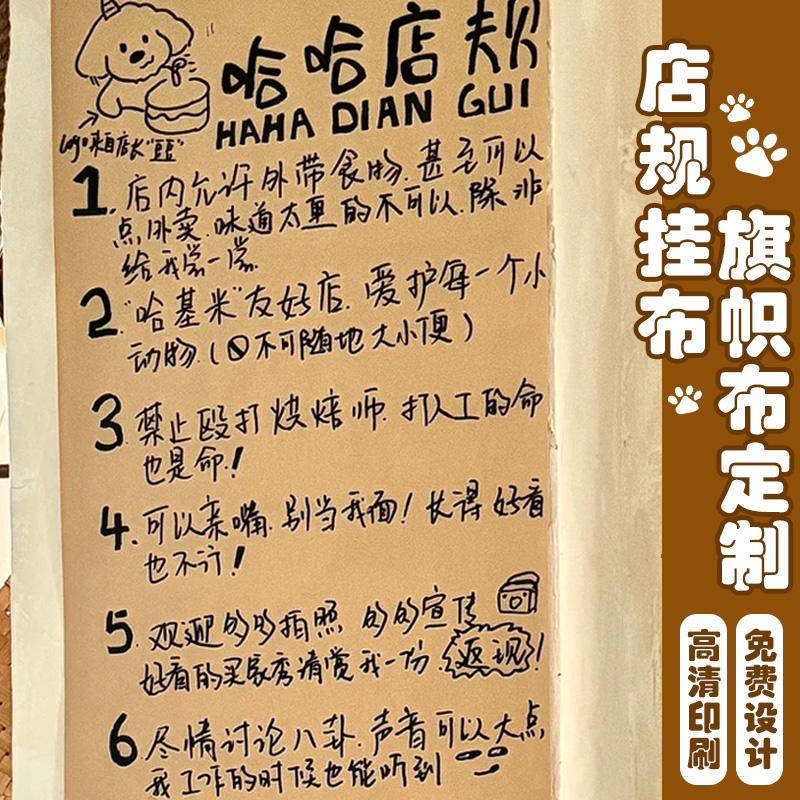 哈哈店规
HAHA DIAN GUI
logo来自店长"豆豆"
1.店内允许外带食物.甚至可以
点外卖.味道太重的不可以.除非
给我尝一尝.
2."哈基米"友好店.爱护每一个小
动物.(不可随地大小便)
3.禁止殴打烘焙师.打人工的命
也是命!
4.可以亲嘴.别当我面!长得好看
也不行!
5.欢迎多多拍照 多多宣传
好看的买家秀请赏我一份.返现!
6.尽情讨论八卦.声音可以大点
我工作的时候也能听到
店规挂布
旗帜布定制
高清印刷
免费设计